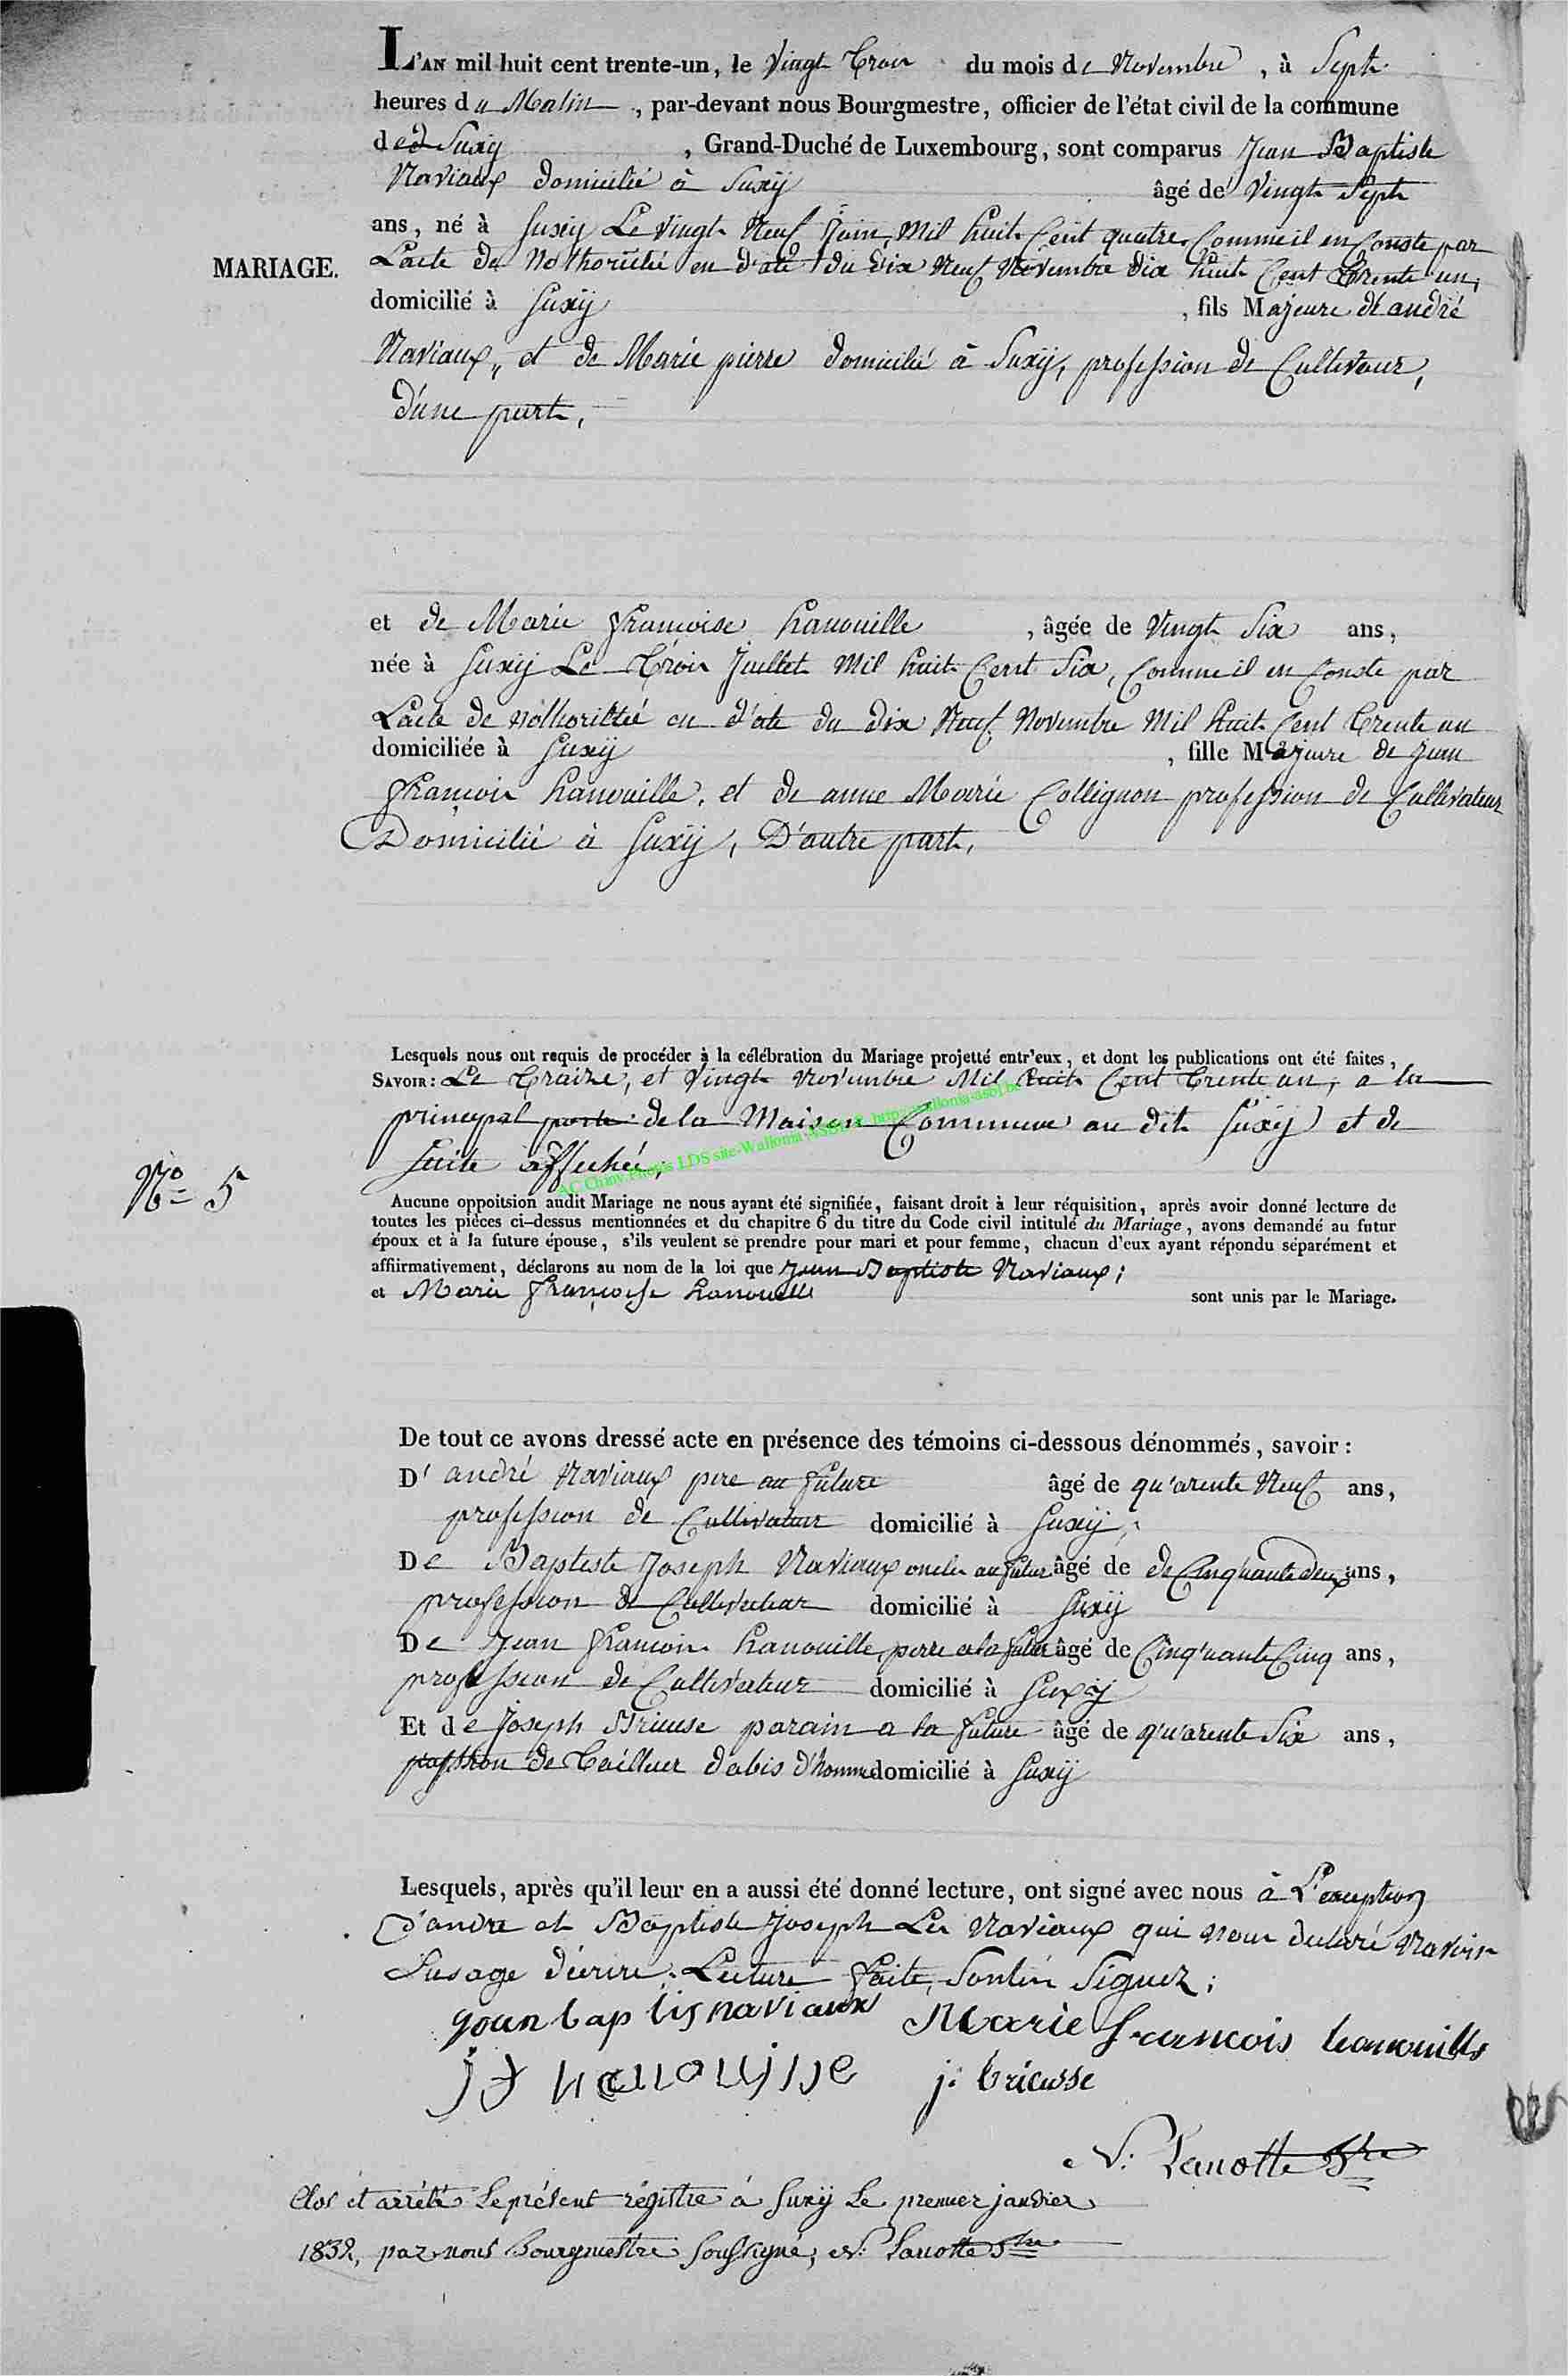 L'AN mil huit cent trente-un, le Vingt Trois du mois de Novembre, à Sept
heures du Matin, par-devant nous Bourgmestre, officier de l'état civil de la commune
de Suxÿ, Grand-Duché de Luxembourg, sont comparus Jean Baptiste
Naviaux domicilié à Suxÿ âgé de Vingt Sept
ans, né à Suxÿ Le vingt Neuf Juin, Mil huit Cent quatre, Comme il en Conste par
MARIAGE. L'acte de Nothoriétée en d'ate du dix Neuf Novembre dix huit Cent Trente un,
domicilié à Suxÿ, fils Majeure de andré
Naviaux, et de Marie pierre domicilié à Suxÿ, profession de Cultivateur,
D'une part,
et de Marie françoise hanouille, âgée de Vingt Six ans,
née à Suxÿ Le Trois Juillet Mil huit Cent Six, Comme il en Conste par
L'acte de nothoriétée en d'ate du Dix Neuf Novembre Mil huit Cent Trente un
domiciliée à Suxÿ, fille Majeure de Jean
françois hanouille, et de anne Marie Collignon profession de Cultivateur
Domicilié à Suxÿ, D'autre part,
Lesquels nous ont requis de procéder à la célébration du Mariage projetté entr'eux, et dont les publications ont été faites,
SAVOIR: Le Traize, et Vingt Novembre Mil huit Cent Trente un, a la
principal porte de la Maison Commune au dit Suxÿ et de
Suite affichée;
AC Chiny. Photos LDS site-Wallonia ASBL & http://wallonia-asbl.be
N° 5
Aucune oppoitsion audit Mariage ne nous ayant été signifiée, faisant droit à leur réquisition, après avoir donné lecture de
toutes les pièces ci-dessus mentionnées et du chapitre 6 du titre du Code civil intitulé du Mariage, avons demandé au futur
époux et à la future épouse, s'ils veulent se prendre pour mari et pour femme, chacun d'eux ayant répondu séparément et
affiirmativement, déclarons au nom de la loi que Jean Baptiste Naviaux;
et Marie françoise hanouille sont unis par le Mariage.
De tout ce avons dressé acte en présence des témoins ci-dessous dénommés, savoir:
D' andré Naviaux pere au future âgé de qu'arente Neuf ans,
profession de Cultivateur domicilié à Suxÿ,
De Baptiste Joseph Naviaux oncle au futur âgé de de Cinq'uante deux ans,
profession de Cultivateur domicilié à Suxÿ
De Jean françois hanouille, perre a la future âgé de Cinq'uante Cinq ans,
profession de Cultivateur domicilié à Suxÿ
Et de Joseph Bricuse parain a la future âgé de qu'arente Six ans,
de Tailleur d'abis d'homme domicilié à Suxÿ
Lesquels, après qu'il leur en a aussi été donné lecture, ont signé avec nous à L'exception
D'andre et Baptiste Joseph Les Naviaux qui nous declaré Navoir
Lusage d'ecrire. Lecture faite, Signez;
Marie francois hanouille
j: bricusse
N: Lanotte Bre
Clos et arrêté le présent régistre à Suxÿ le premier janvier
1832, par nous Bourgmestre Soussigné; N: Lanotte Bre